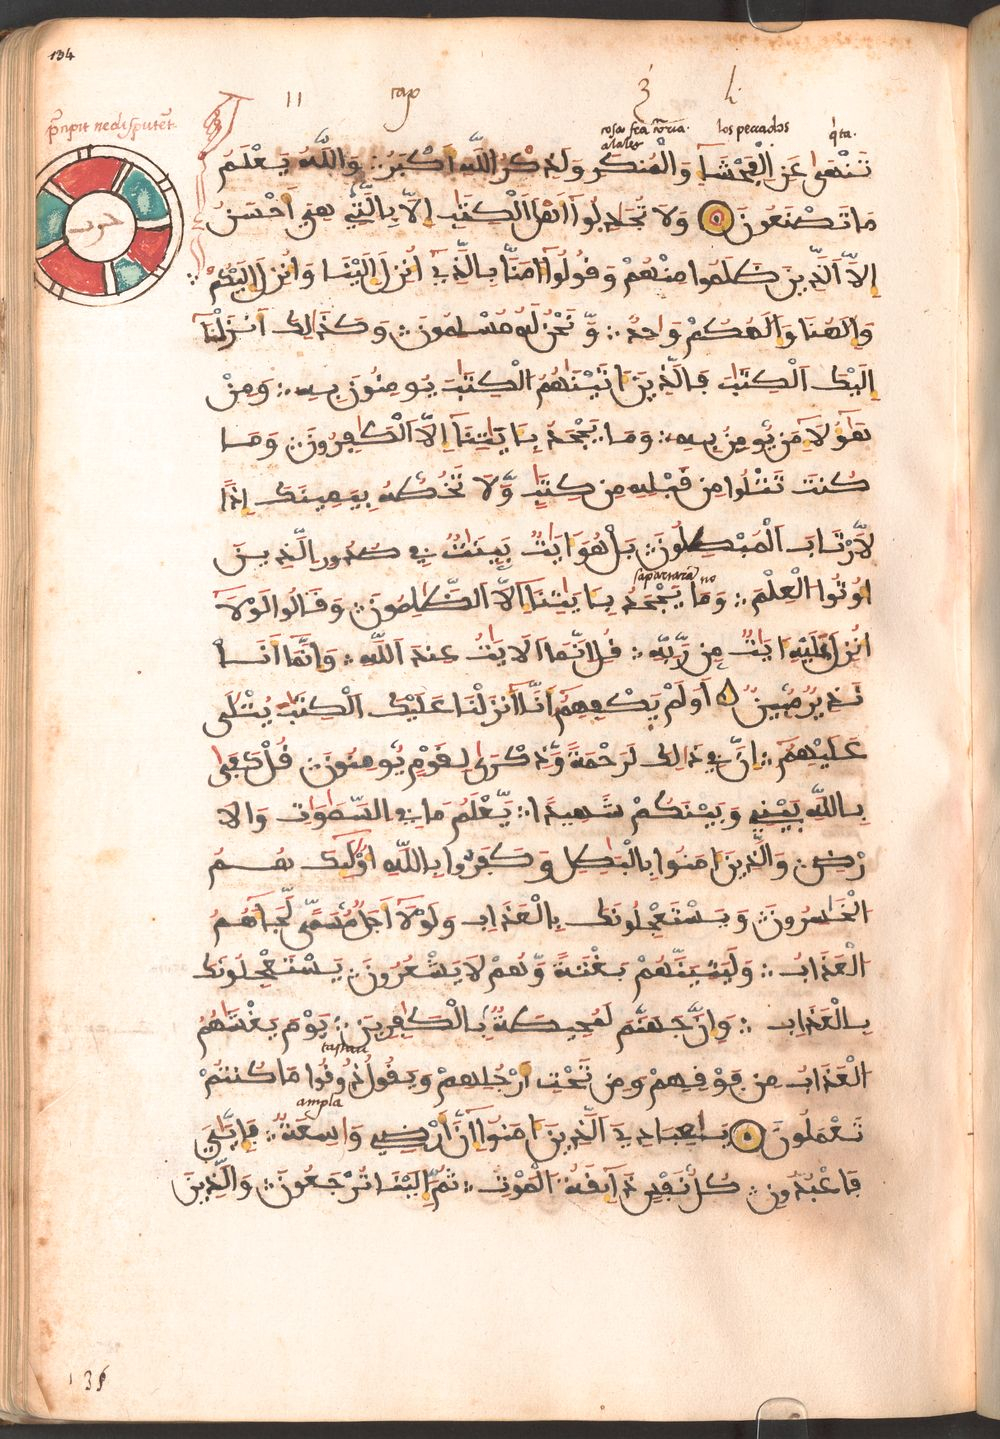 134
11 cap 3 li.
prĩcipit ne disputẽt.
los peccados
qta.
تَنْهَىٰ عَنِ اِ۬لْفَحْشَآءِ وَالْمُنكَرِ وَلَذِكْرُ اُ۬للَّهِ أَكْبَرُ وَاللَّهُ يَعْلَمُ
مَا تَصْنَعُونَ وَلَا تُجَٰدِلُوٓا۟ أَهْلَ اَ۬لْكِتَٰبِ إِلَّا بِالَّتِي هِيَ أَحْسَنُ
حزب
إِلَّا اَ۬لَّذِينَ ظَلَمُوا مِنْهُمْ وَقُولُوٓا ءَامَنَّا بِالَّذِيٓ أُنزِلَ إِلَيْنَا وَأُنزِلَ إِلَيْكُمْ
وَإِلَٰهُنَا وَإِلَٰهُكُمْ وَٰحِدٌ وَّنَحْنُ لَهُ مُسْلِمُونَ وَكَذَٰلِكَ أَنزَلْنَآ
إِلَيْكَ اَ۬لْكِتَٰبَ فَالَّذِينَ ءَاتَيْنَٰهُمُ اُ۬لْكِتَٰبَ يُومِنُونَ بِهِ وَمِنْ
هَٰٓؤُلَآءِ مَن يُّومِنُ بِهِ وَمَا يَجْحَدُ بِـَٔايَٰتِنَآ إِلَّا اَ۬لْكَٰفِرُونَ وَمَا
كُنتَ تَتْلُوا مِن قَبْلِهِ مِن كِتَٰبٍ وَّلَا تَخُطُّهُ بِيَمِينِكَ إِذًا
لَّارْتَابَ اَ۬لْمُبْطِلُونَ بَلْ هُوَ ءَايَٰتٌ بَيِّنَٰتٌ فِي صُدُورِ اِ۬لَّذِينَ
أُوتُوا الْعِلْمَ وَمَا يَجْحَدُ بِـَٔايَٰتِنَآ إِلَّا اَ۬لظَّٰلِمُونَ وَقَالُوا لَوْلَآ
أُنزِلَ عَلَيْهِ ءَايَٰتٌ مِّن رَّبِّهِ قُلْ إِنَّمَا اَ۬لْأَيَٰتُ عِندَ اَ۬للَّهِ وَإِنَّمَآ أَنَا
نَذِيرٌ مُّبِينٌ أَوَلَمْ يَكْفِهِمُ أَنَّآ أَنزَلْنَا عَلَيْكَ اَ۬لْكِتَٰبَ يُتْلَىٰ
عَلَيْهِمُ إِنَّ فِي ذَٰلِكَ لَرَحْمَةً وَّذِكْرَىٰ لِقَوْمٍ يُّومِنُونَ قُلْ كَفَىٰ
بِاللَّهِ بَيْنِي وَبَيْنَكُمْ شَهِيدًا يَّعْلَمُ مَا فِي السَّمَٰوَٰتِ وَالَا
رْضِ وَالَّذِينَ ءَامَنُوا بِالْبَٰطِلِ وَكَفَرُوا بِاللَّهِ أُوْلَٰٓئِكَ هُمُ
اُ۬لْخَٰسِرُونَ وَيَسْتَعْجِلُونَكَ بِالْعَذَابِ وَلَوْلَآ أَجَلٌ مُّسَمًّى لَّجَآءَهُمُ
الْعَذَابُ وَلَيَأْتِيَنَّهُمْ بَغْتَةً وَّهُمْ لَا يَشْعُرُونَ يَسْتَعْجِلُونَكَ
بِالْعَذَابِ وَإِنَّ جَهَنَّمَ لَمُحِيطَةٌ بِالْكَٰفِرِينَ يَوْمَ يَغْشَٰهُمُ
الْعَذَابُ مِن فَوْقِهِمْ وَمِن تَحْتِ أَرْجُلِهِمْ وَيَقُولُ ذُوقُوا مَا كُنتُمْ
ampla
تَعْمَلُونَ يَٰعِبَادِيَ اَ۬لَّذِينَ ءَامَنُوٓا إِنَّ أَرْضِي وَٰسِعَةٌ فَإِيَّٰيَ
فَاعْبُدُونِ كُلُّ نَفْسٍ ذَآئِقَةُ الْمَوْتِ ثُمَّ إِلَيْنَا تُرْجَعُونَ وَالَّذِينَ
135